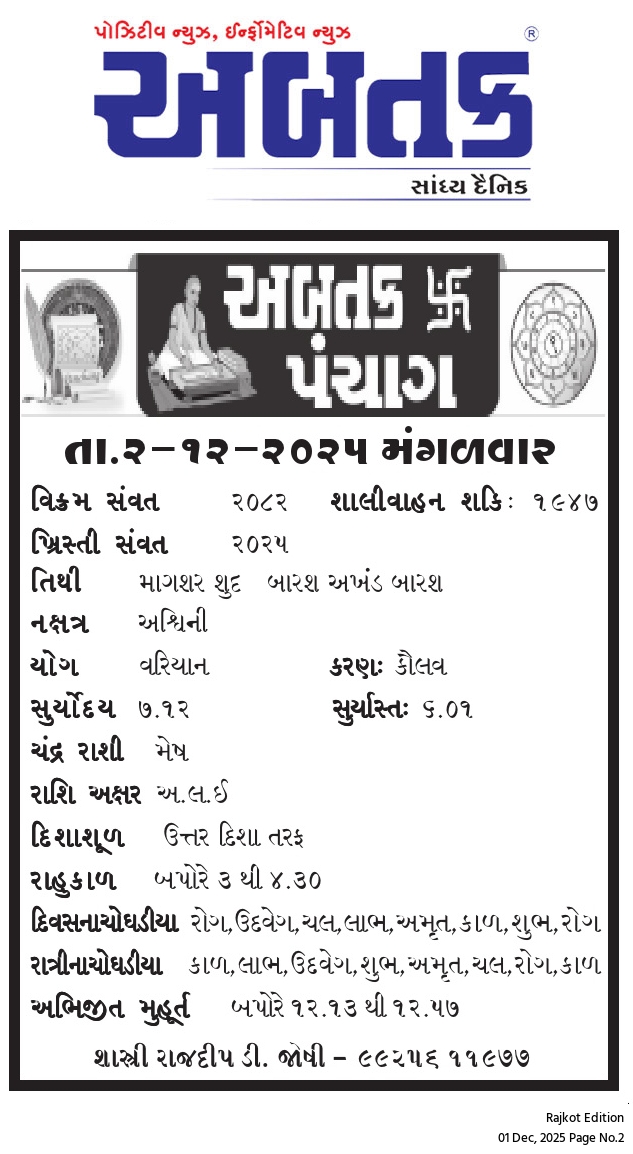 પોઝિટીવ ન્યુઝ, ઈન્ફોર્મેટિવ ન્યુઝ
®
અબતક
સાંધ્ય દૈનિક
અબતક 卐
પંચાગ
તા.૨-૧૨-૨૦૨૫ મંગળવાર
વિક્રમ સંવત ૨૦૮૨ શાલીવાહન શકિ: ૧૯૪૭
ખ્રિસ્તી સંવત ૨૦૨૫
તિથી માગશર શુદ બારશ અખંડ બારશ
નક્ષત્ર અશ્વિની
યોગ વરિયાન કરણ: કૌલવ
સુર્યોદય ૭.૧૨ સુર્યાસ્ત: ૬.૦૧
ચંદ્ર રાશી મેષ
રાશિ અક્ષર અ.લ.ઈ
દિશાશૂળ ઉત્તર દિશા તરફ
રાહુકાળ બપોરે ૩ થી ૪.૩૦
દિવસનાચોઘડીયા રોગ,ઉદવેગ,ચલ,લાભ,અમૃત,કાળ,શુભ,રોગ
રાત્રીનાચોઘડીયા કાળ,લાભ,ઉદવેગ,શુભ,અમૃત,ચલ,રોગ,કાળ
અભિજીત મુહૂર્ત બપોરે ૧૨.૧૩ થી ૧૨.૫૭
શાસ્ત્રી રાજદીપ ડી. જોષી – ૯૯૨૫૬ ૧૧૯૭૭
Rajkot Edition
01 Dec, 2025 Page No.2